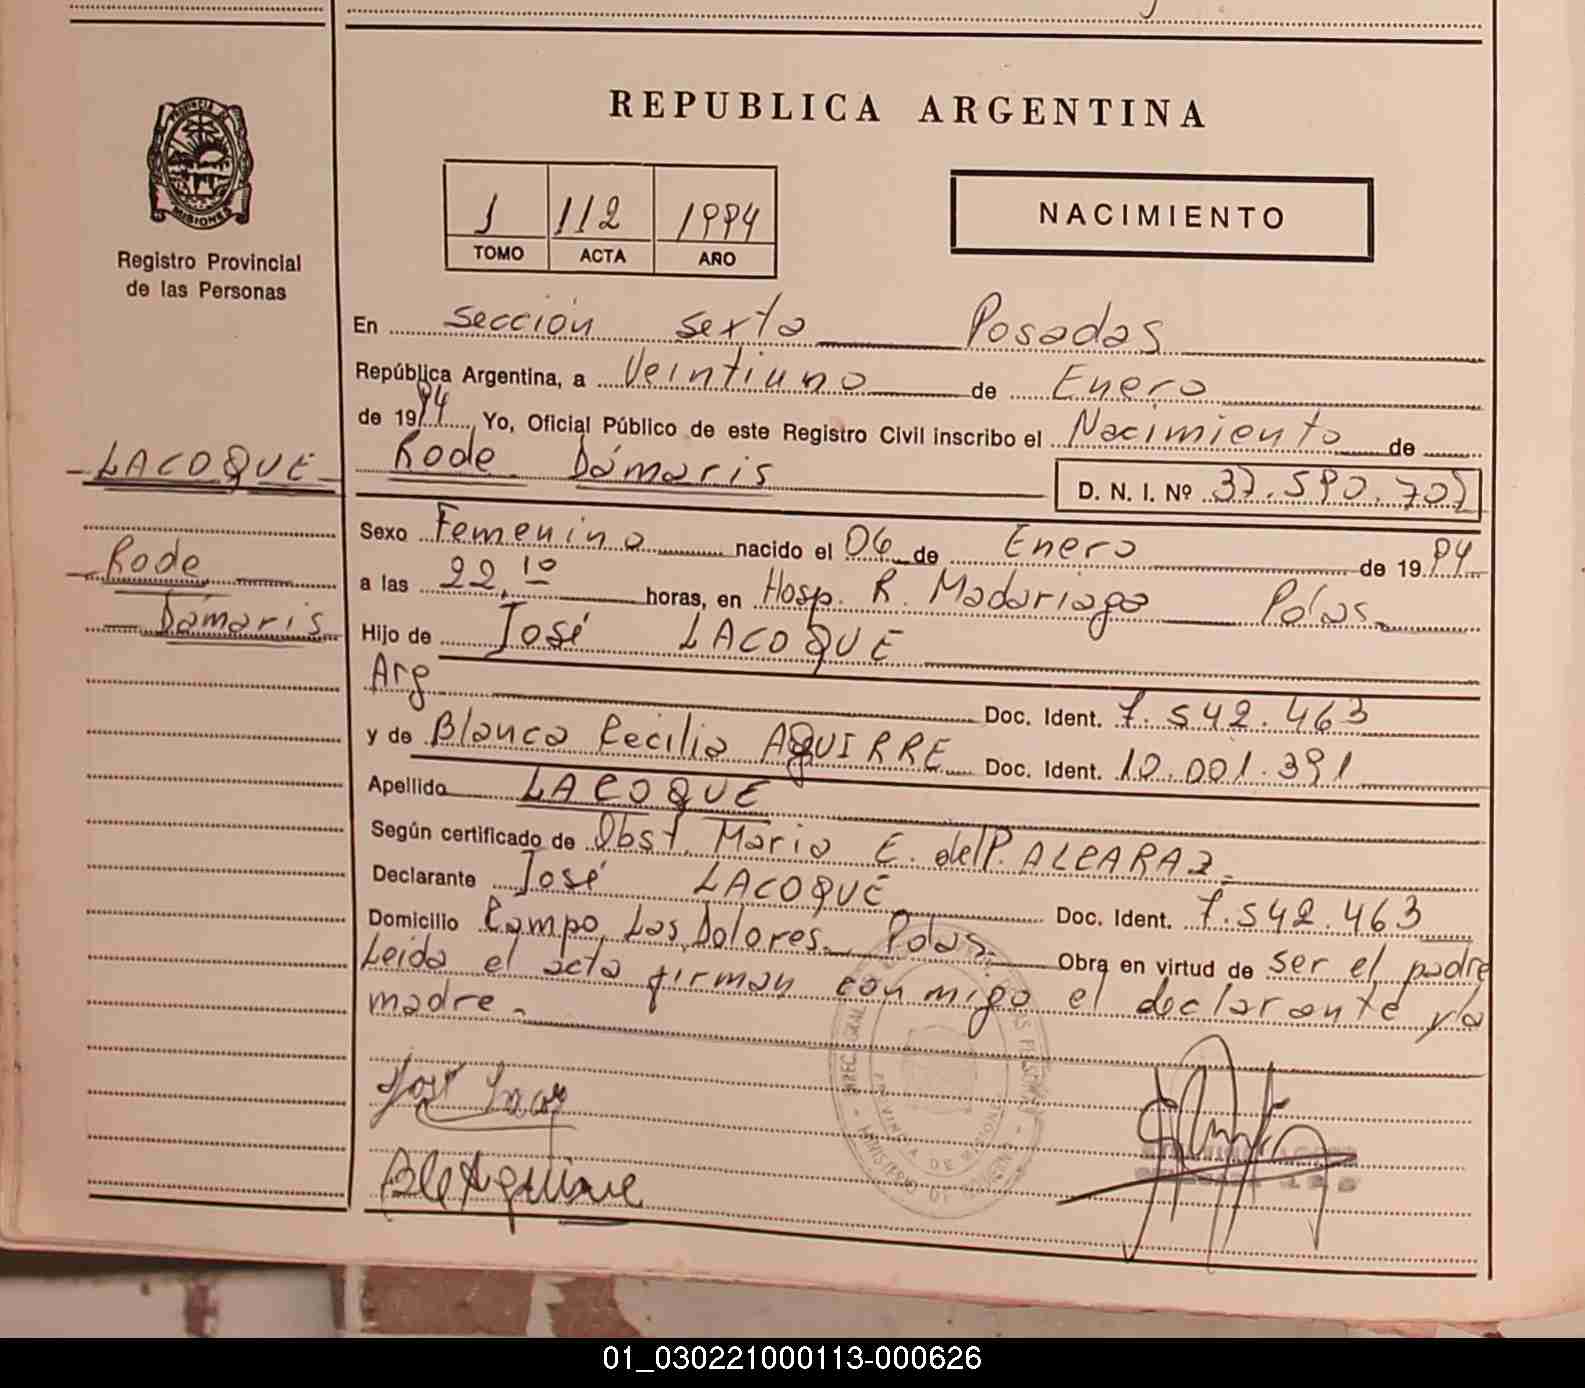 REPUBLICA ARGENTINA
PROVINCIA DE
MISIONES
Registro Provincial
de las Personas
1 112 1994
TOMO ACTA AÑO
NACIMIENTO
En Sección Sexta Posadas
República Argentina, a Veintiuno de Enero
de 1994 Yo, Oficial Público de este Registro Civil inscribo el Nacimiento de
LACOQUE
Rode Dámaris D. N. I. Nº 37.590.707
Sexo Femenino nacido el 06 de Enero de 1994
Rode
Dámaris
a las 22,10 horas, en Hosp. R. Madariaga Pdas.
Hijo de José LACOQUE
Arg Doc. Ident. 7.542.463
y de Blanca Cecilia AGUIRRE Doc. Ident. 10.001.391
Apellido LACOQUE
Según certificado de Obst. Maria E. del P. ALCARAZ.
Declarante José LACOQUE Doc. Ident. 7.542.463
Domicilio Campo, Las Dolores Pdas. Obra en virtud de ser el padre
Leida el acta firman conmigo el declarante y la
madre.
PROVINCIA DE MISIONES
MINISTERIO DE GOBIERNO
01_030221000113-000626